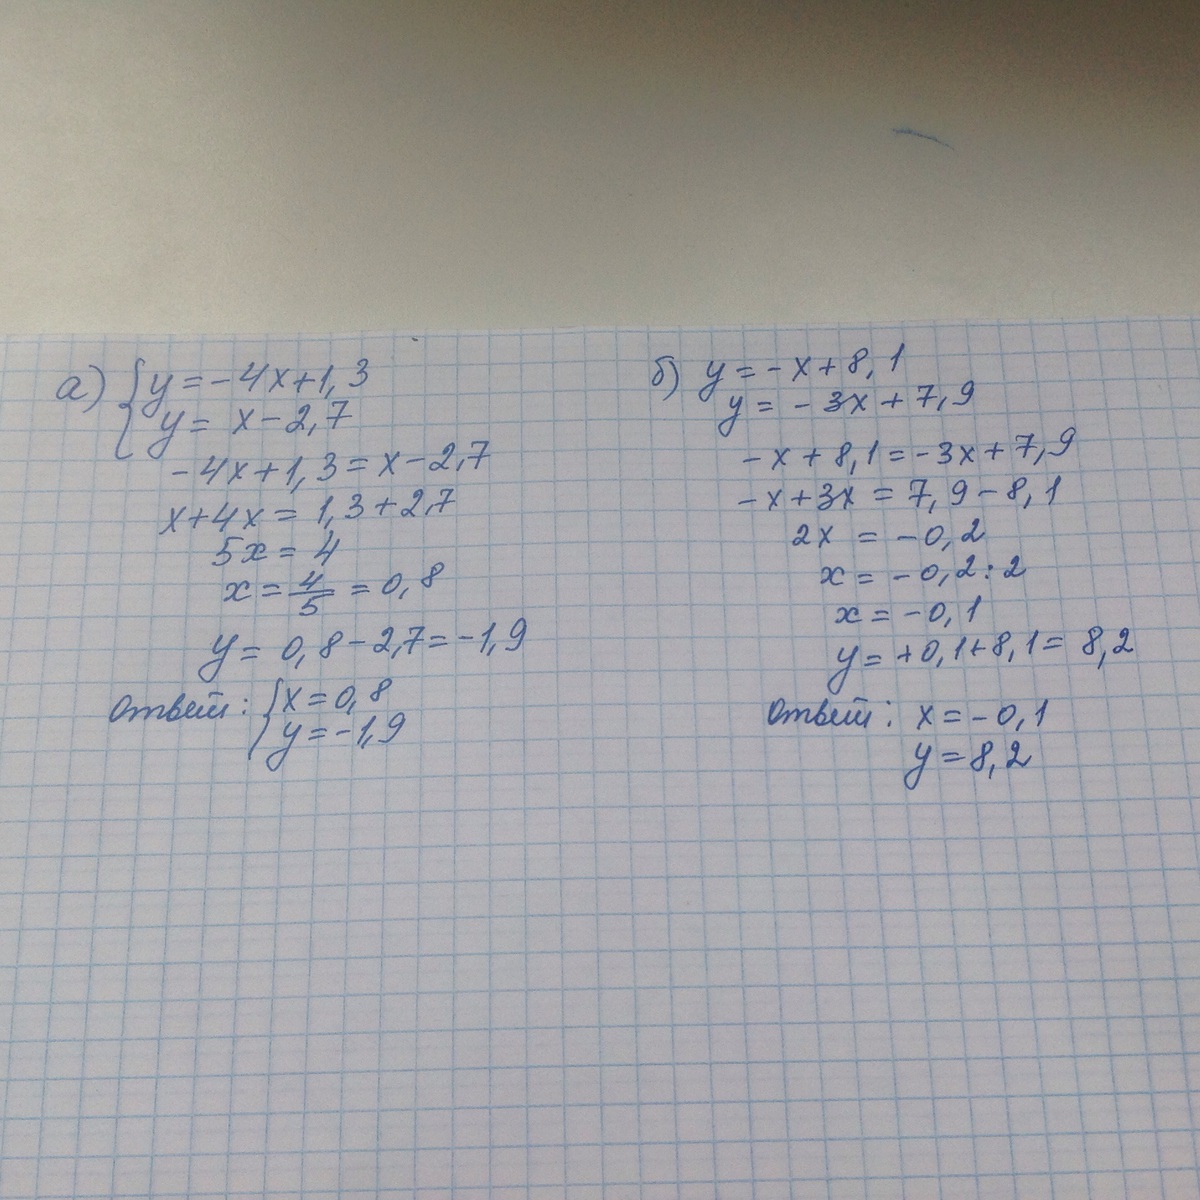 а) { y = -4x + 1,3
y = x - 2,7
-4x + 1,3 = x - 2,7
x + 4x = 1,3 + 2,7
5x = 4
x = 4/5 = 0,8
y = 0,8 - 2,7 = -1,9
Ответ: { x = 0,8
y = -1,9
б) y = -x + 8,1
y = -3x + 7,9
-x + 8,1 = -3x + 7,9
-x + 3x = 7,9 - 8,1
2x = -0,2
x = -0,2 : 2
x = -0,1
y = +0,1 + 8,1 = 8,2
Ответ: x = -0,1
y = 8,2